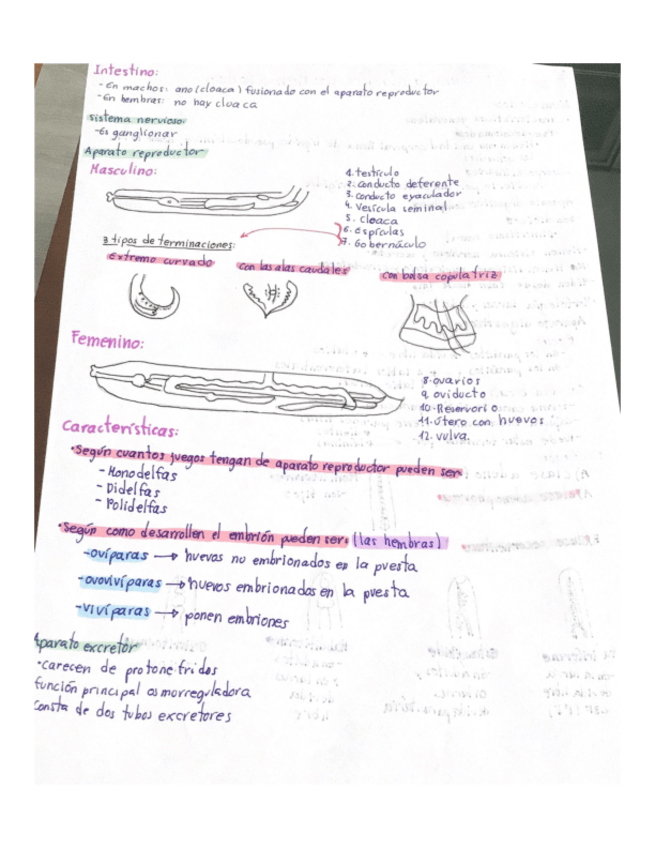 Intestino:
-En machos: ano (cloaca) fusionado con el aparato reproductor
-En hembras: no hay cloaca
Sistema nervioso:
-Es ganglionar
Aparato reproductor
Masculino:
1. testículo
2. conducto deferente
3. conducto eyaculador
4. Vesícula seminal
5. cloaca
6. espículas
7. Gobernáculo
3 tipos de terminaciones:
Extremo curvado
con las alas caudales
con bolsa copulatriz
Femenino:
8. ovarios
9. oviducto
10. Reservorio
11. útero con huevos
12. vulva.
Características:
•Según cuantos juegos tengan de aparato reproductor pueden ser:
- Monodelfas
- Didelfas
- Polidelfas
•Según como desarrollen el embrión pueden ser: (las hembras)
-ovíparas → huevos no embrionados en la puesta
-ovovivíparas → huevos embrionados en la puesta
-vivíparas → ponen embriones
Aparato excretor
•carecen de protonefridos
función principal osmorreguladora
Consta de dos tubos excretores